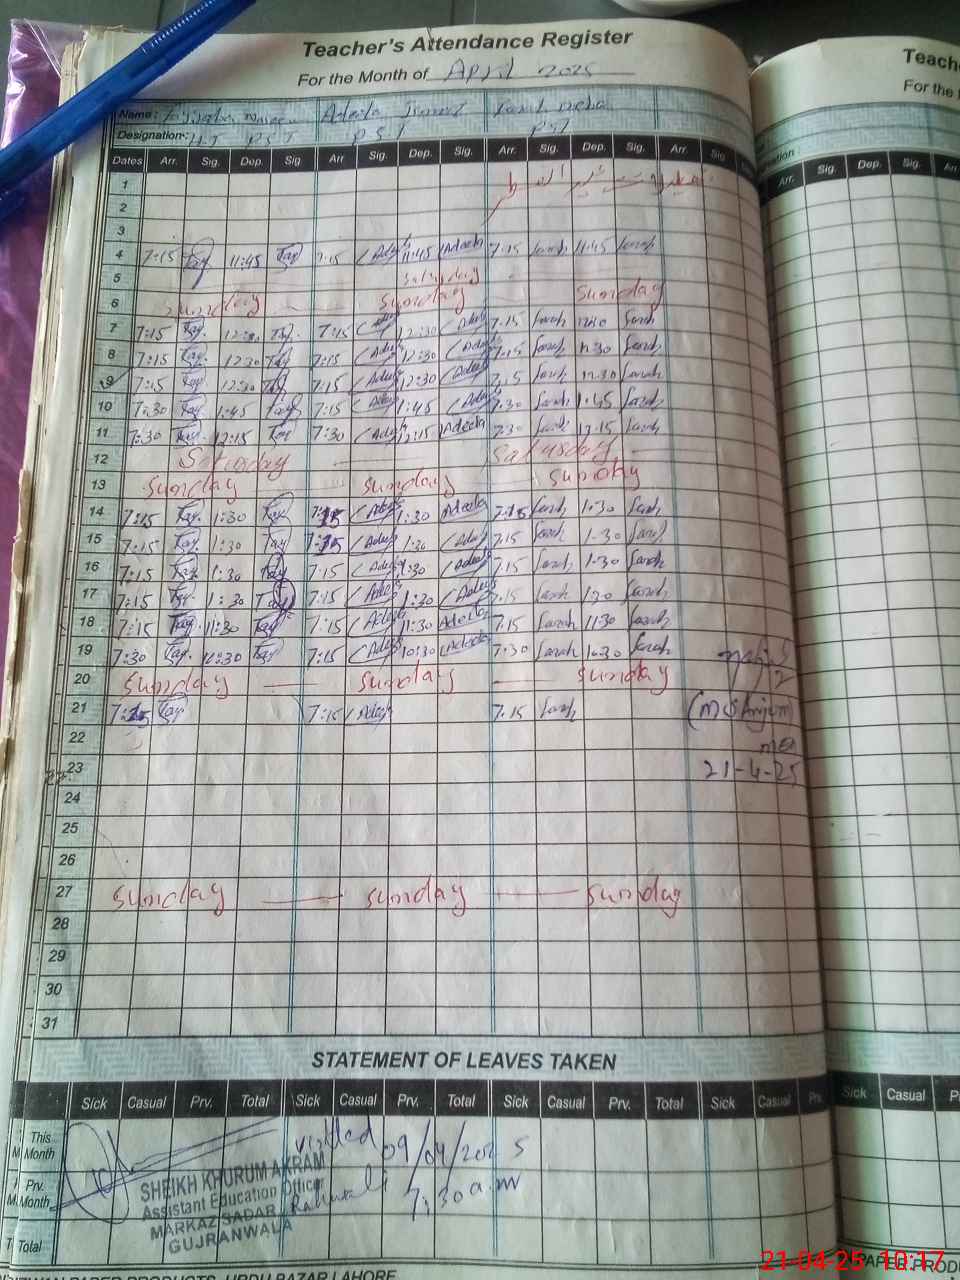 Teacher's Attendance Register
For the Month of April 2025
Name:
Designation: HT PST PST PST
Dates Arr. Sig. Dep. Sig Arr Sig. Dep. Sig. Arr. Sig. Dep. Sig. Arr. Sig
1
2
3
4 7:15 Tay 11:45 Tay 7:15 Adeela 11:45 Adeela 7:15 Sarah 11:45 Sarah
5 Saturday
6 Sunday Sunday Sunday
7 7:15 Tay. 12:30 Tay. 7:15 Adeela 12:30 Adeela 7:15 Sarah 12:30 Sarah
8 7:15 Tay. 12:30 Tay 7:15 Adeela 12:30 Adeela 7:15 Sarah 12:30 Sarah
9 7:15 Tay. 12:30 Tay 7:15 Adeela 12:30 Adeela 7:15 Sarah 12:30 Sarah
10 7:30 Tay 1:45 Tay 7:15 Adeela 1:45 Adeela 7:30 Sarah 1:45 Sarah
11 7:30 Tay. 12:15 Tay 7:30 Adeela 12:15 Adeela 7:30 Sarah 12:15 Sarah
12 Saturday Saturday
13 Sunday Sunday Sunday
14 7:15 Tay. 1:30 Tay 7:15 Adeela 1:30 Adeela 7:15 Sarah 1:30 Sarah
15 7:15 Tay 1:30 Tay 7:15 Adeela 1:30 Adeela 7:15 Sarah 1:30 Sarah
16 7:15 Tay 1:30 Tay 7:15 Adeela 1:30 Adeela 7:15 Sarah 1:30 Sarah
17 7:15 Tay. 1:30 Tay 7:15 Adeela 1:30 Adeela 7:15 Sarah 1:30 Sarah
18 7:15 Tay 11:30 Tay 7:15 Adeela 11:30 Adeela 7:15 Sarah 11:30 Sarah
19 7:30 Tay. 10:30 Tay 7:15 Adeela 10:30 Adeela 7:30 Sarah 10:30 Sarah
20 Sunday Sunday Sunday
21 7:15 Tay 7:15 Adeela 7:15 Sarah
22
23 21-4-25
24
25
26
27 Sunday Sunday Sunday
28
29
30
31
STATEMENT OF LEAVES TAKEN
Sick Casual Prv. Total Sick Casual Prv. Total Sick Casual Prv. Total Sick Casual Prv.
This Month
visited 09/04/2025
Prv. Month
7:30 a.m
SHEIKH KHURUM AKRAM
Assistant Education Officer
MARKAZ SADAR Rahwali
GUJRANWALA
Total
PAPER PRODUCTS, URDU BAZAR LAHORE
Teache
For the
Arr. Sig. Dep. Sig. Arr
Sick Casual
PAPER PROD
21-04-25 10:17